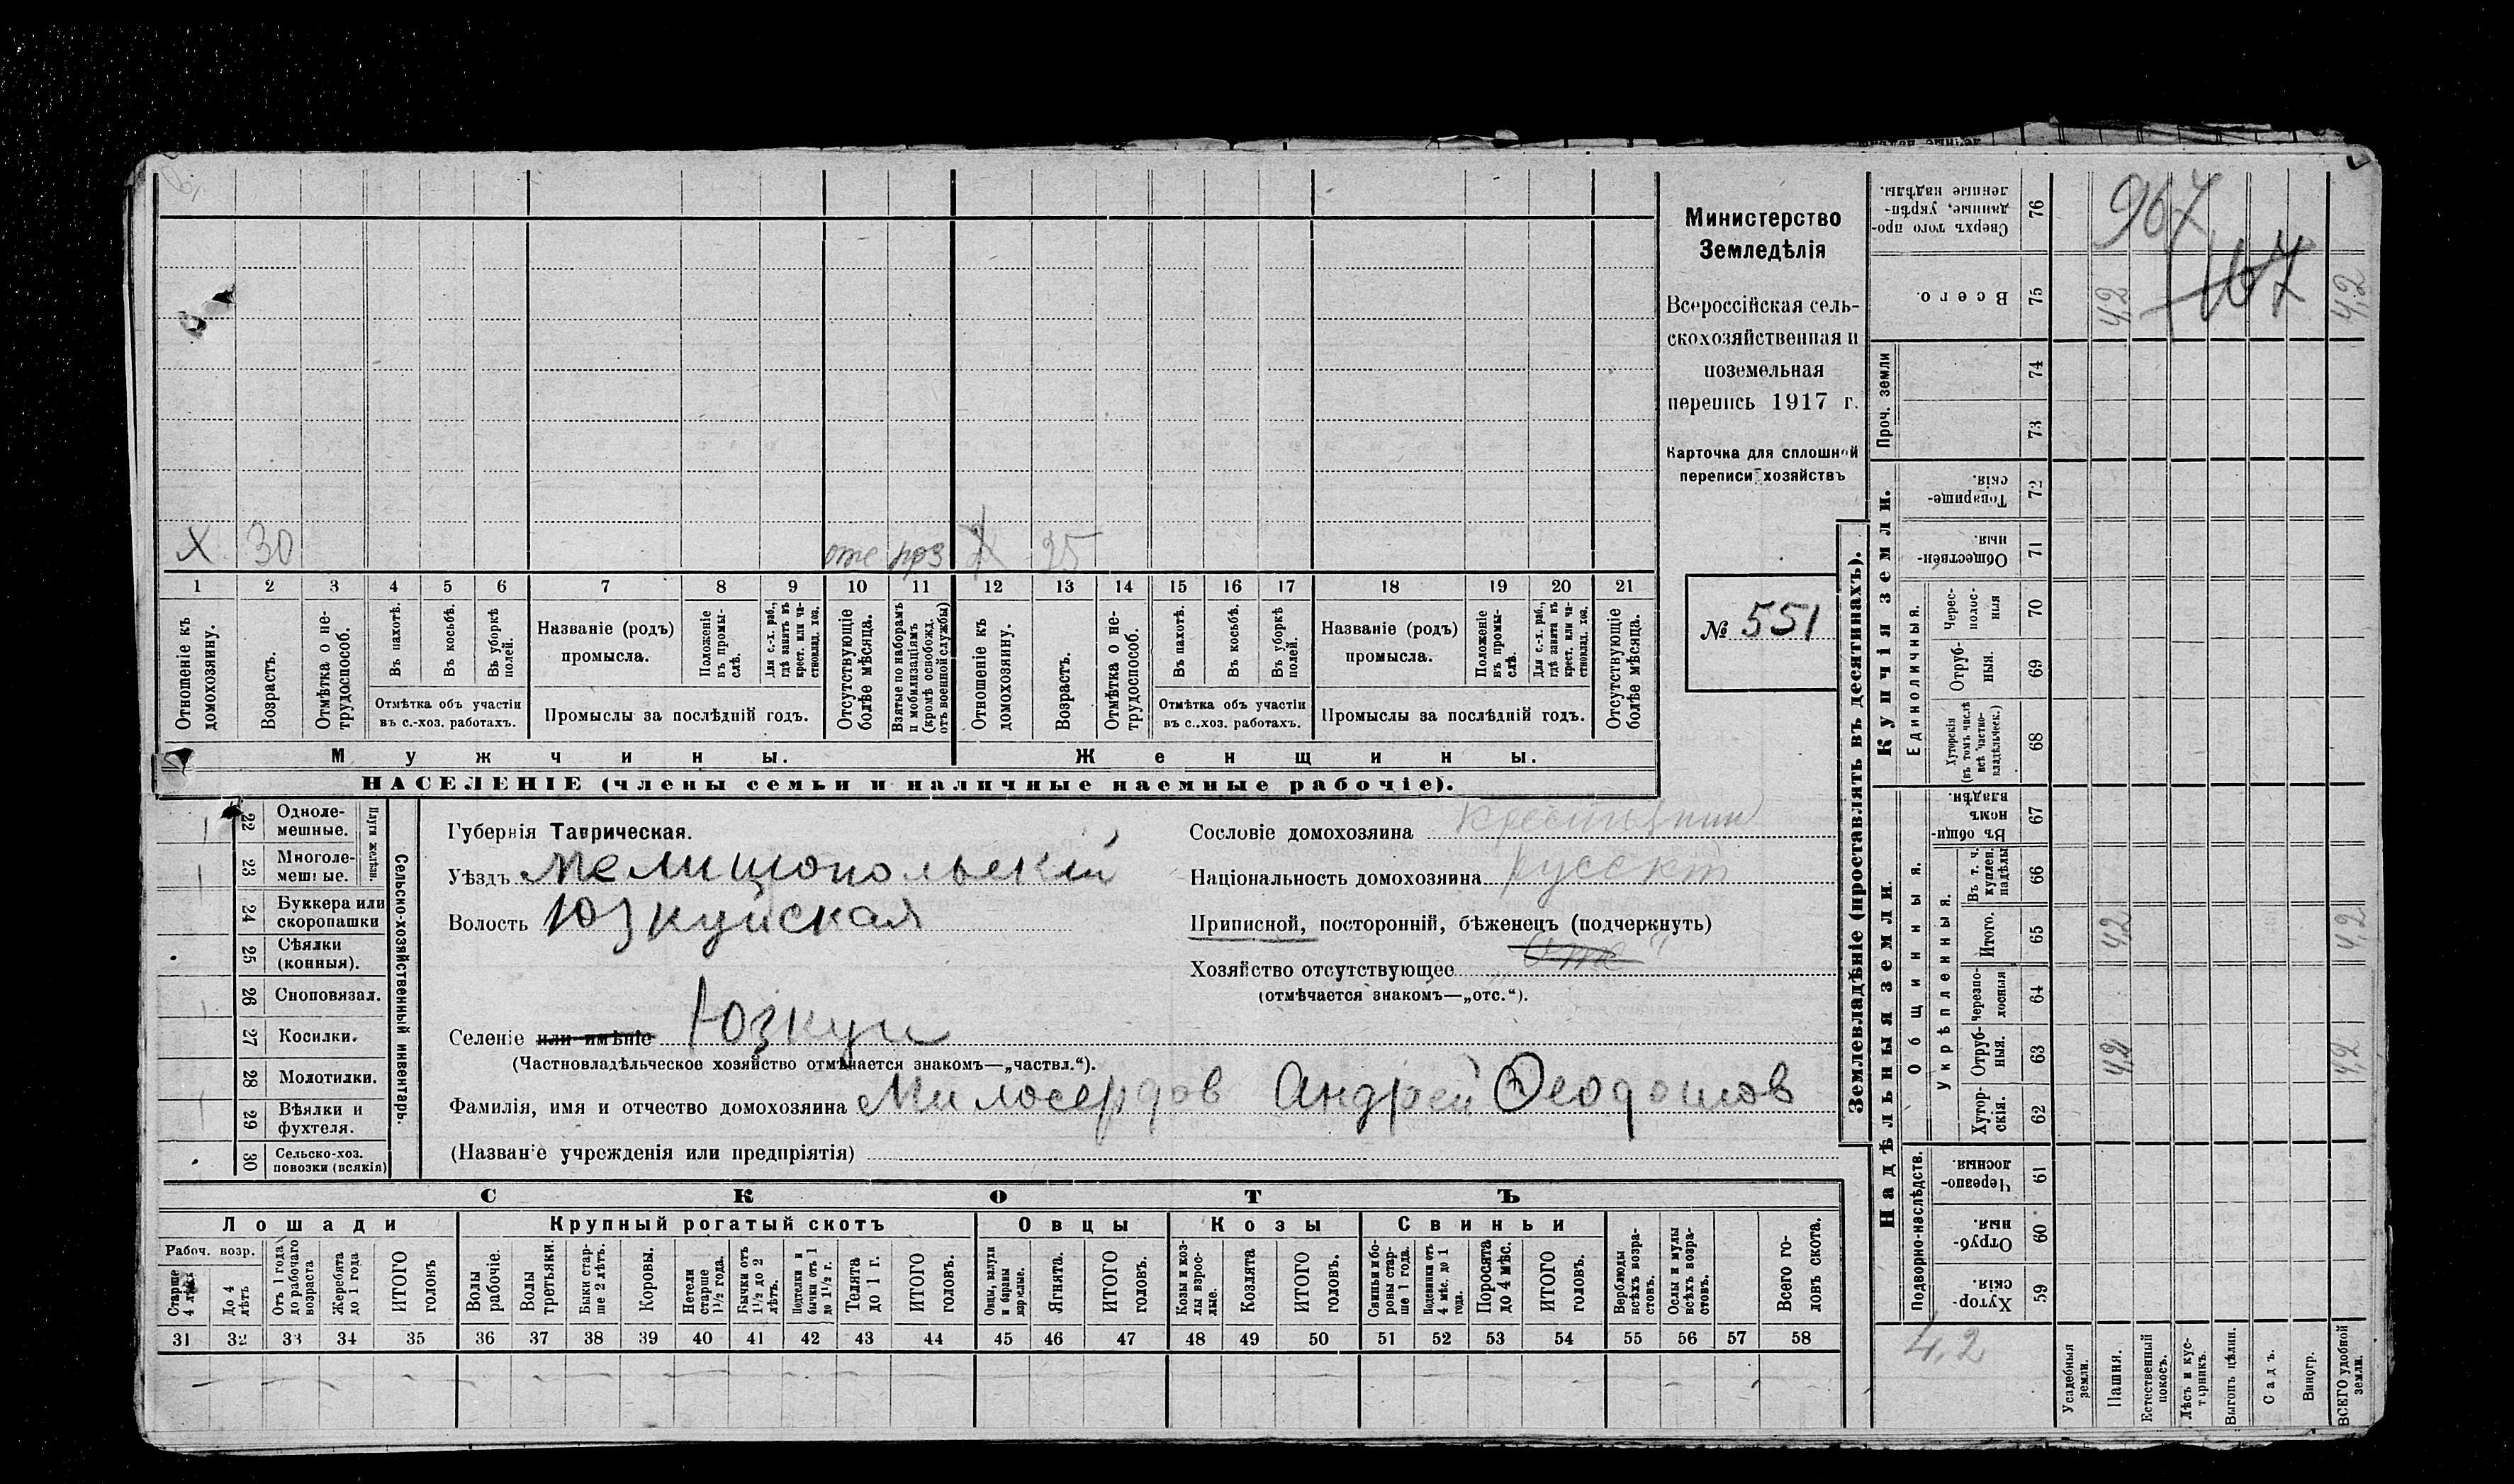 Министерство
Земледѣлія
Всероссійская сель-
скохозяйственная и
поземельная
перепись 1917 г.
Карточка для сплошной
переписи хозяйствъ
№ 551
X 30 отс X 25
1 2 3 4 5 6 7 8 9 10 11 12 13 14 15 16 17 18 19 20 21
Отношеніе къ домохозяину.
Возрастъ.
Отмѣтка о не-трудоспособ.
Въ пахотѣ.
Въ косьбѣ.
Въ уборкѣ полей.
Отмѣтка объ участіи
въ с.-хоз. работахъ.
Названіе (родъ)
промысла.
Положеніе въ промы-слѣ.
Для с.-х. раб., гдѣ занятъ въ крест. или ча-стновлад. хоз.
Промыслы за послѣдній годъ.
Отсутствующіе болѣе мѣсяца.
Взятые по наборамъ и мобилизаціямъ (кромѣ освобожд. отъ военной службы)
Отношеніе къ домохозяину.
Возрастъ.
Отмѣтка о не-трудоспособ.
Въ пахотѣ.
Въ косьбѣ.
Въ уборкѣ полей.
Отмѣтка объ участіи
въ с.-хоз. работахъ.
Названіе (родъ)
промысла.
Положеніе въ промы-слѣ.
Для с.-х. раб., гдѣ занята въ крест. или ча-стновлад. хоз.
Промыслы за послѣдній годъ.
Отсутствующіе болѣе мѣсяца.
Мужчины.
Женщины.
НАСЕЛЕНІЕ (члены семьи и наличные наемные рабочіе).
22 Одноле-мешные.
23 Многоле-мешные.
Плуги желѣзн.
24 Буккера или скоропашки
25 Сѣялки (конныя).
26 Сноповязал.
27 Косилки.
28 Молотилки.
29 Вѣялки и фухтеля.
30 Сельско-хоз. повозки (всякія)
Сельско-хозяйственный инвентарь.
Губернія Таврическая.
Уѣздъ Мелитопольскій
Волость Юзкуйская
Селеніе или имѣніе Юзкуи
(Частновладѣльческое хозяйство отмѣчается знакомъ—„частвл.“).
Фамилія, имя и отчество домохозяина Милосердов Андрей Феодосиов
(Названіе учрежденія или предпріятія)
Сословіе домохозяина крестьянин
Національность домохозяина русскі
Приписной, посторонній, бѣженецъ (подчеркнуть)
Хозяйство отсутствующее отс
(отмѣчается знакомъ—„отс.“).
СКОТЪ
Лошади
Крупный рогатый скотъ
Овцы
Козы
Свиньи
Рабоч. возр.
Старше 4 лѣтъ
До 4 лѣтъ
Отъ 1 года до рабочаго возраста
Жеребята до 1 года
ИТОГО головъ
Волы рабочіе.
Волы третьяки.
Быки стар-ше 2 лѣтъ.
Коровы.
Нетели старше 1½ года.
Бычки отъ 1½ до 2 лѣтъ.
Подтелки и бычки отъ 1 до 1½ г.
Телята до 1 г.
ИТОГО головъ.
Овцы, валухи и бараны взрослые.
Ягнята.
ИТОГО головъ.
Козы и коз-лы взрос-лые.
Козлята
ИТОГО головъ.
Свиньи бо-ровы стар-ше 1 года.
Подсвинки отъ 4 мѣс. до 1 года.
Поросята до 4 мѣс.
ИТОГО головъ.
Верблюды всѣхъ возра-стовъ.
Ослы и мулы всѣхъ возра-стовъ.
Всего го-ловъ скота.
31 32 33 34 35 36 37 38 39 40 41 42 43 44 45 46 47 48 49 50 51 52 53 54 55 56 57 58
Землевладѣніе (проставлять въ десятинахъ).
Купчія земли.
Надѣльныя земли.
967
167
76 Сверхъ того про-данные, укрѣп-ленные надѣлы.
75 Всего. 4,2 4,2
Проч. земли
74
73
72 Товарище-скія.
71 Обществен-ныя.
Единоличныя.
70 Черес-полос-ныя
69 Отруб-ныя.
68 Хуторскія (въ томъ числѣ всѣ частно-владѣльческ.)
Общинныя.
67 Въ общин-номъ владѣн.
Укрѣпленныя.
66 Въ т. ч. куплен. надѣлы
65 Итого. 4,2 4,2
64 Черезпо-лосныя
63 Отруб-ныя. 4,2 4,2
62 Хутор-скія.
Подворно-наслѣдств.
61 Черезпо-лосныя.
60 Отруб-ныя.
59 Хутор-скія.
4,2
Усадебныя земли.
Пашня.
Естественный покосъ.
Лѣсъ и кус-тарникъ.
Выгонъ цѣлин.
Садъ.
Виногр.
ВСЕГО удобной земли.